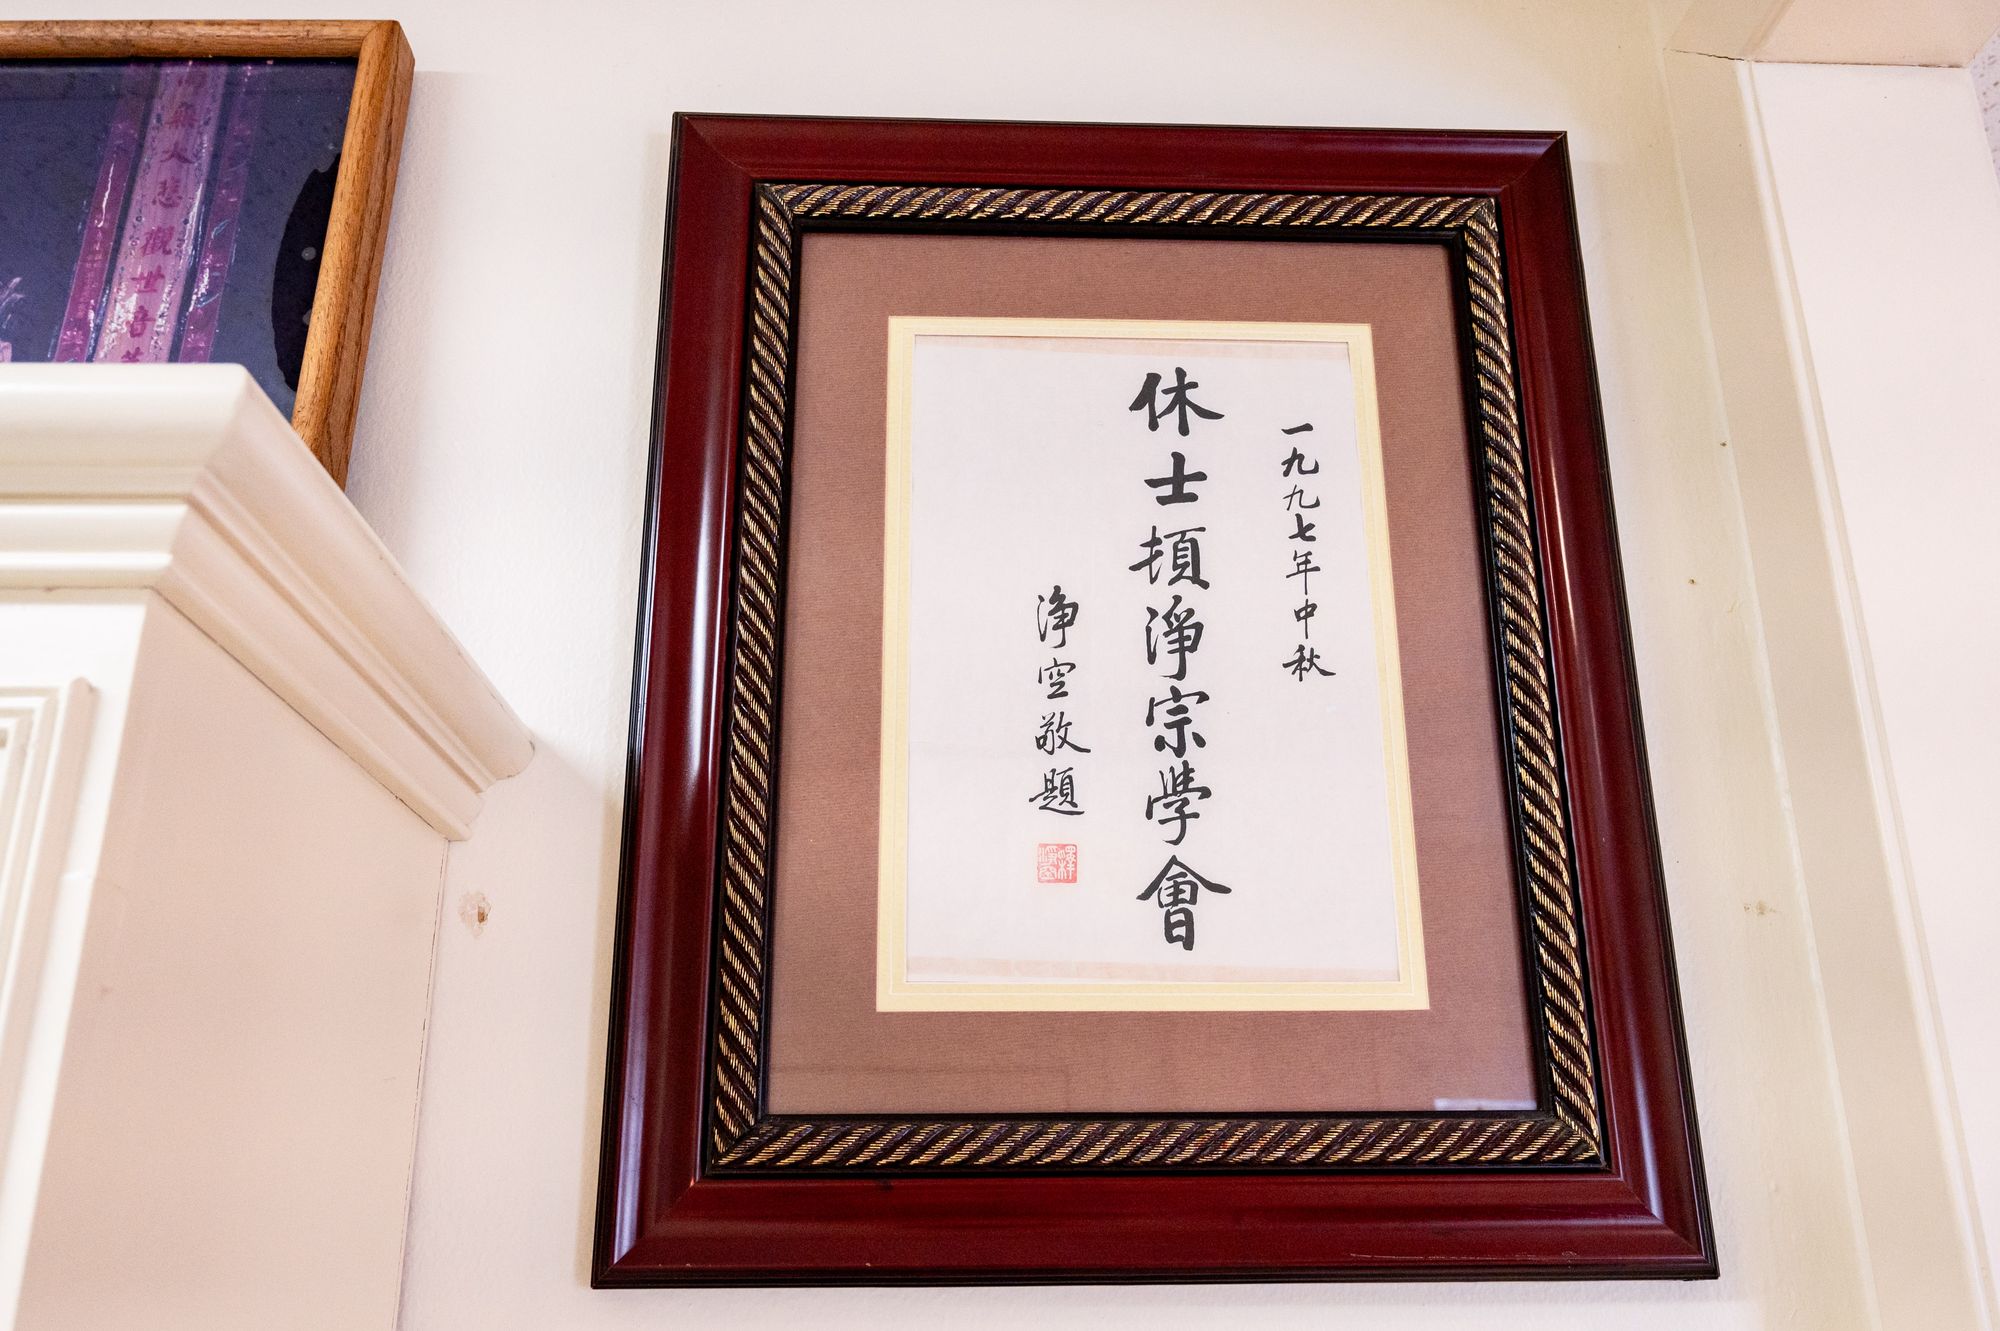 一九九七年中秋
休士頓淨宗學會
淨空敬題
釋淨空
無大悲觀世音菩